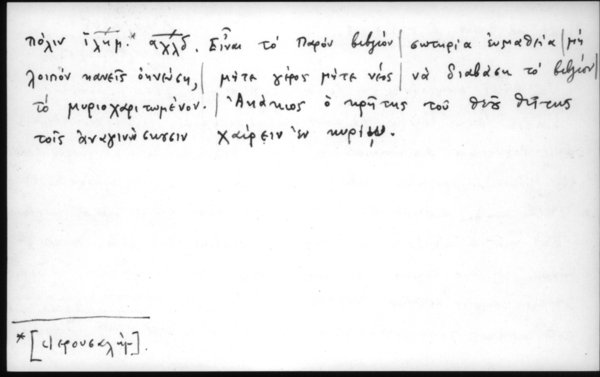 πόλιν ἰλήμ.* αχλδ. Εἶναι τὸ παρὸν βιβλίον | σωτηρία εὐμαθεία | μὴ
λοιπὸν κανεὶς ὀκνεύση, | μήτε γέρος μήτε νέος | νὰ διαβάση τὸ βιβλίον |
τὸ μυριοχαριτωμένον. | Ἀκάκιος ὁ κρήτης τοῦ θεοῦ θύτης
τοῖς ἀναγινώσκουσιν χαίρειν ἐν κυρίῳ.
* [ιερουσαλήμ].